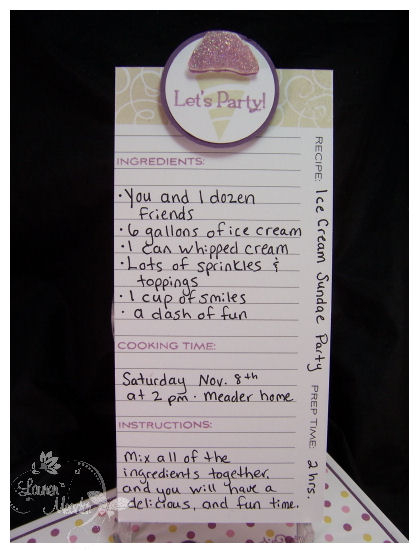 Let's Party!
INGREDIENTS:
• You and 1 dozen
friends
• 6 gallons of ice cream
• 1 can whipped cream
• Lots of sprinkles &
toppings
• 1 cup of smiles
• a dash of fun
COOKING TIME:
Saturday Nov. 8th
at 2 pm • Meader home
INSTRUCTIONS:
Mix all of the
ingredients together,
and you will have a
delicious, and fun time.
RECIPE: Ice Cream Sundae Party
PREP TIME: 2 hrs.
Lauren
Meader